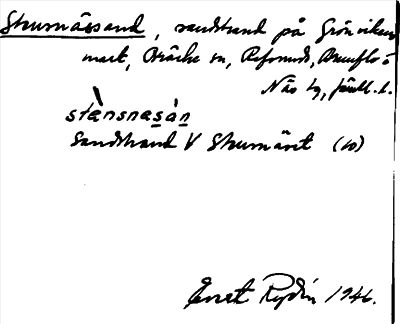 Strumässand, sandstrand på Grönviken
mark, Bräcke sn, Refsunds, Brunflo o
Näs tg, Jämtl. l.
stànsnasàn
Sandstrand V Strumäset (10)
Ernst Rydén 1946.